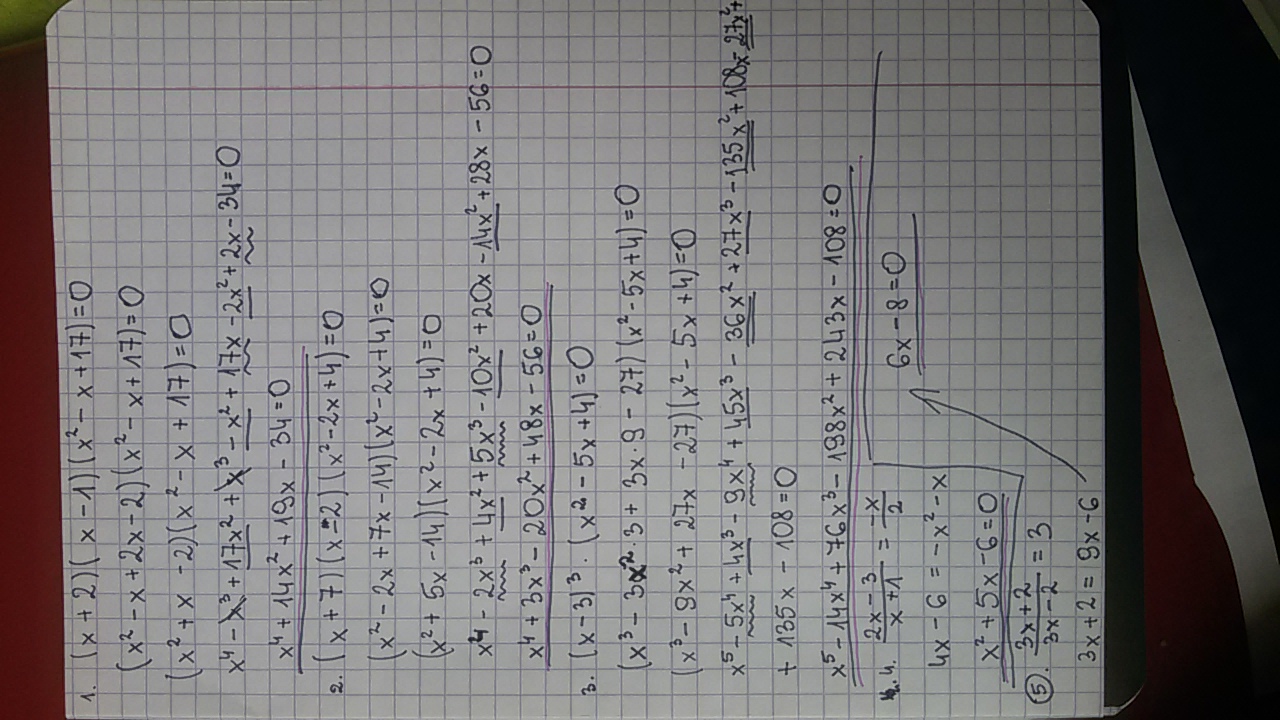 1. (x+2)(x-1)(x²-x+17)=0
(x²-x+2x-2)(x²-x+17)=0
(x²+x-2)(x²-x+17)=0
x⁴-x³+17x²+x³-x²+17x-2x²+2x-34=0
x⁴+14x²+19x-34=0
2. (x+7)(x-2)(x²-2x+4)=0
(x²-2x+7x-14)(x²-2x+4)=0
(x²+5x-14)(x²-2x+4)=0
x⁴-2x³+4x²+5x³-10x²+20x-14x²+28x-56=0
x⁴+3x³-20x²+48x-56=0
3. (x-3)³·(x²-5x+4)=0
(x³-3x²·3+3x·9-27)(x²-5x+4)=0
(x³-9x²+27x-27)(x²-5x+4)=0
x⁵-5x⁴+4x³-9x⁴+45x³-36x²+27x³-135x²+108x-27x²+
+135x-108=0
x⁵-14x⁴+76x³-198x²+243x-108=0
4. (2x-3)/(x+1)=-x/2
4x-6=-x²-x
x²+5x-6=0
5. (3x+2)/(3x-2)=3
3x+2=9x-6
6x-8=0